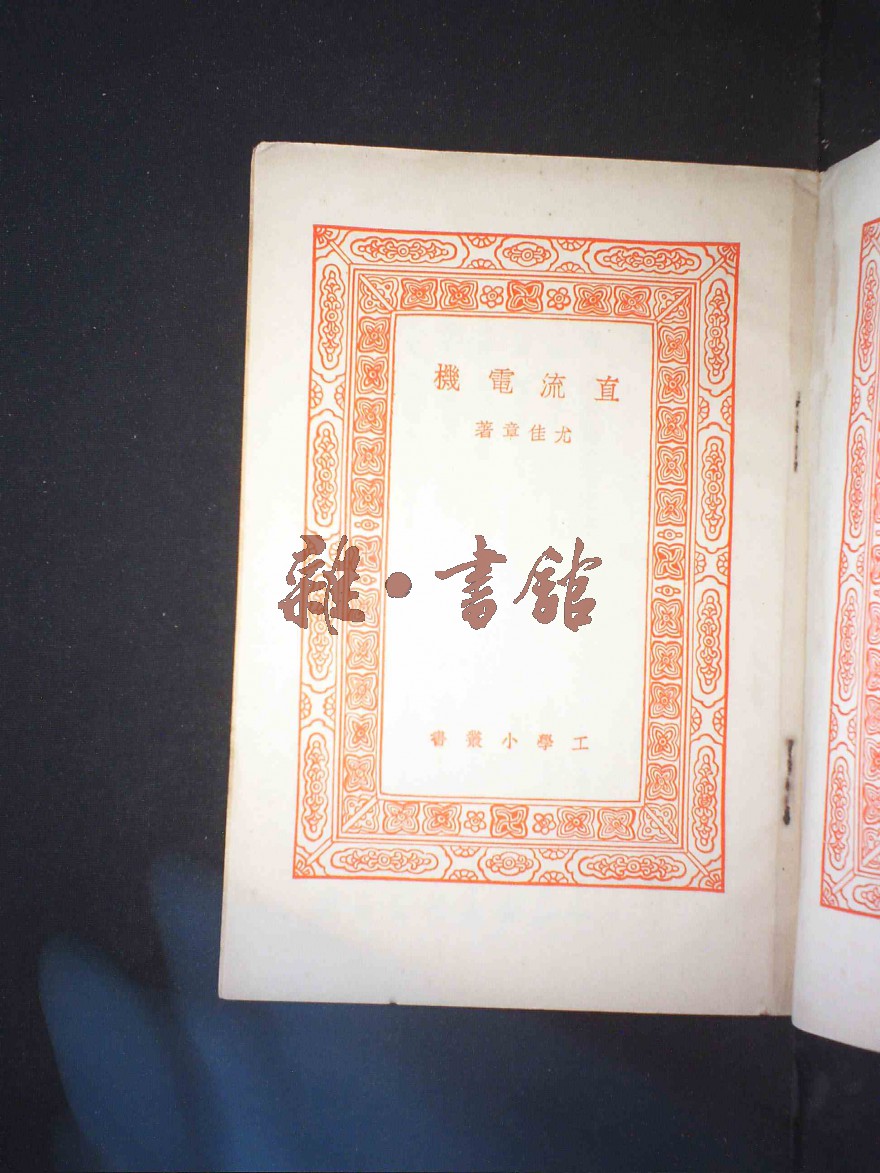 直流電機
尤佳章著
雜·書館
工學小叢書